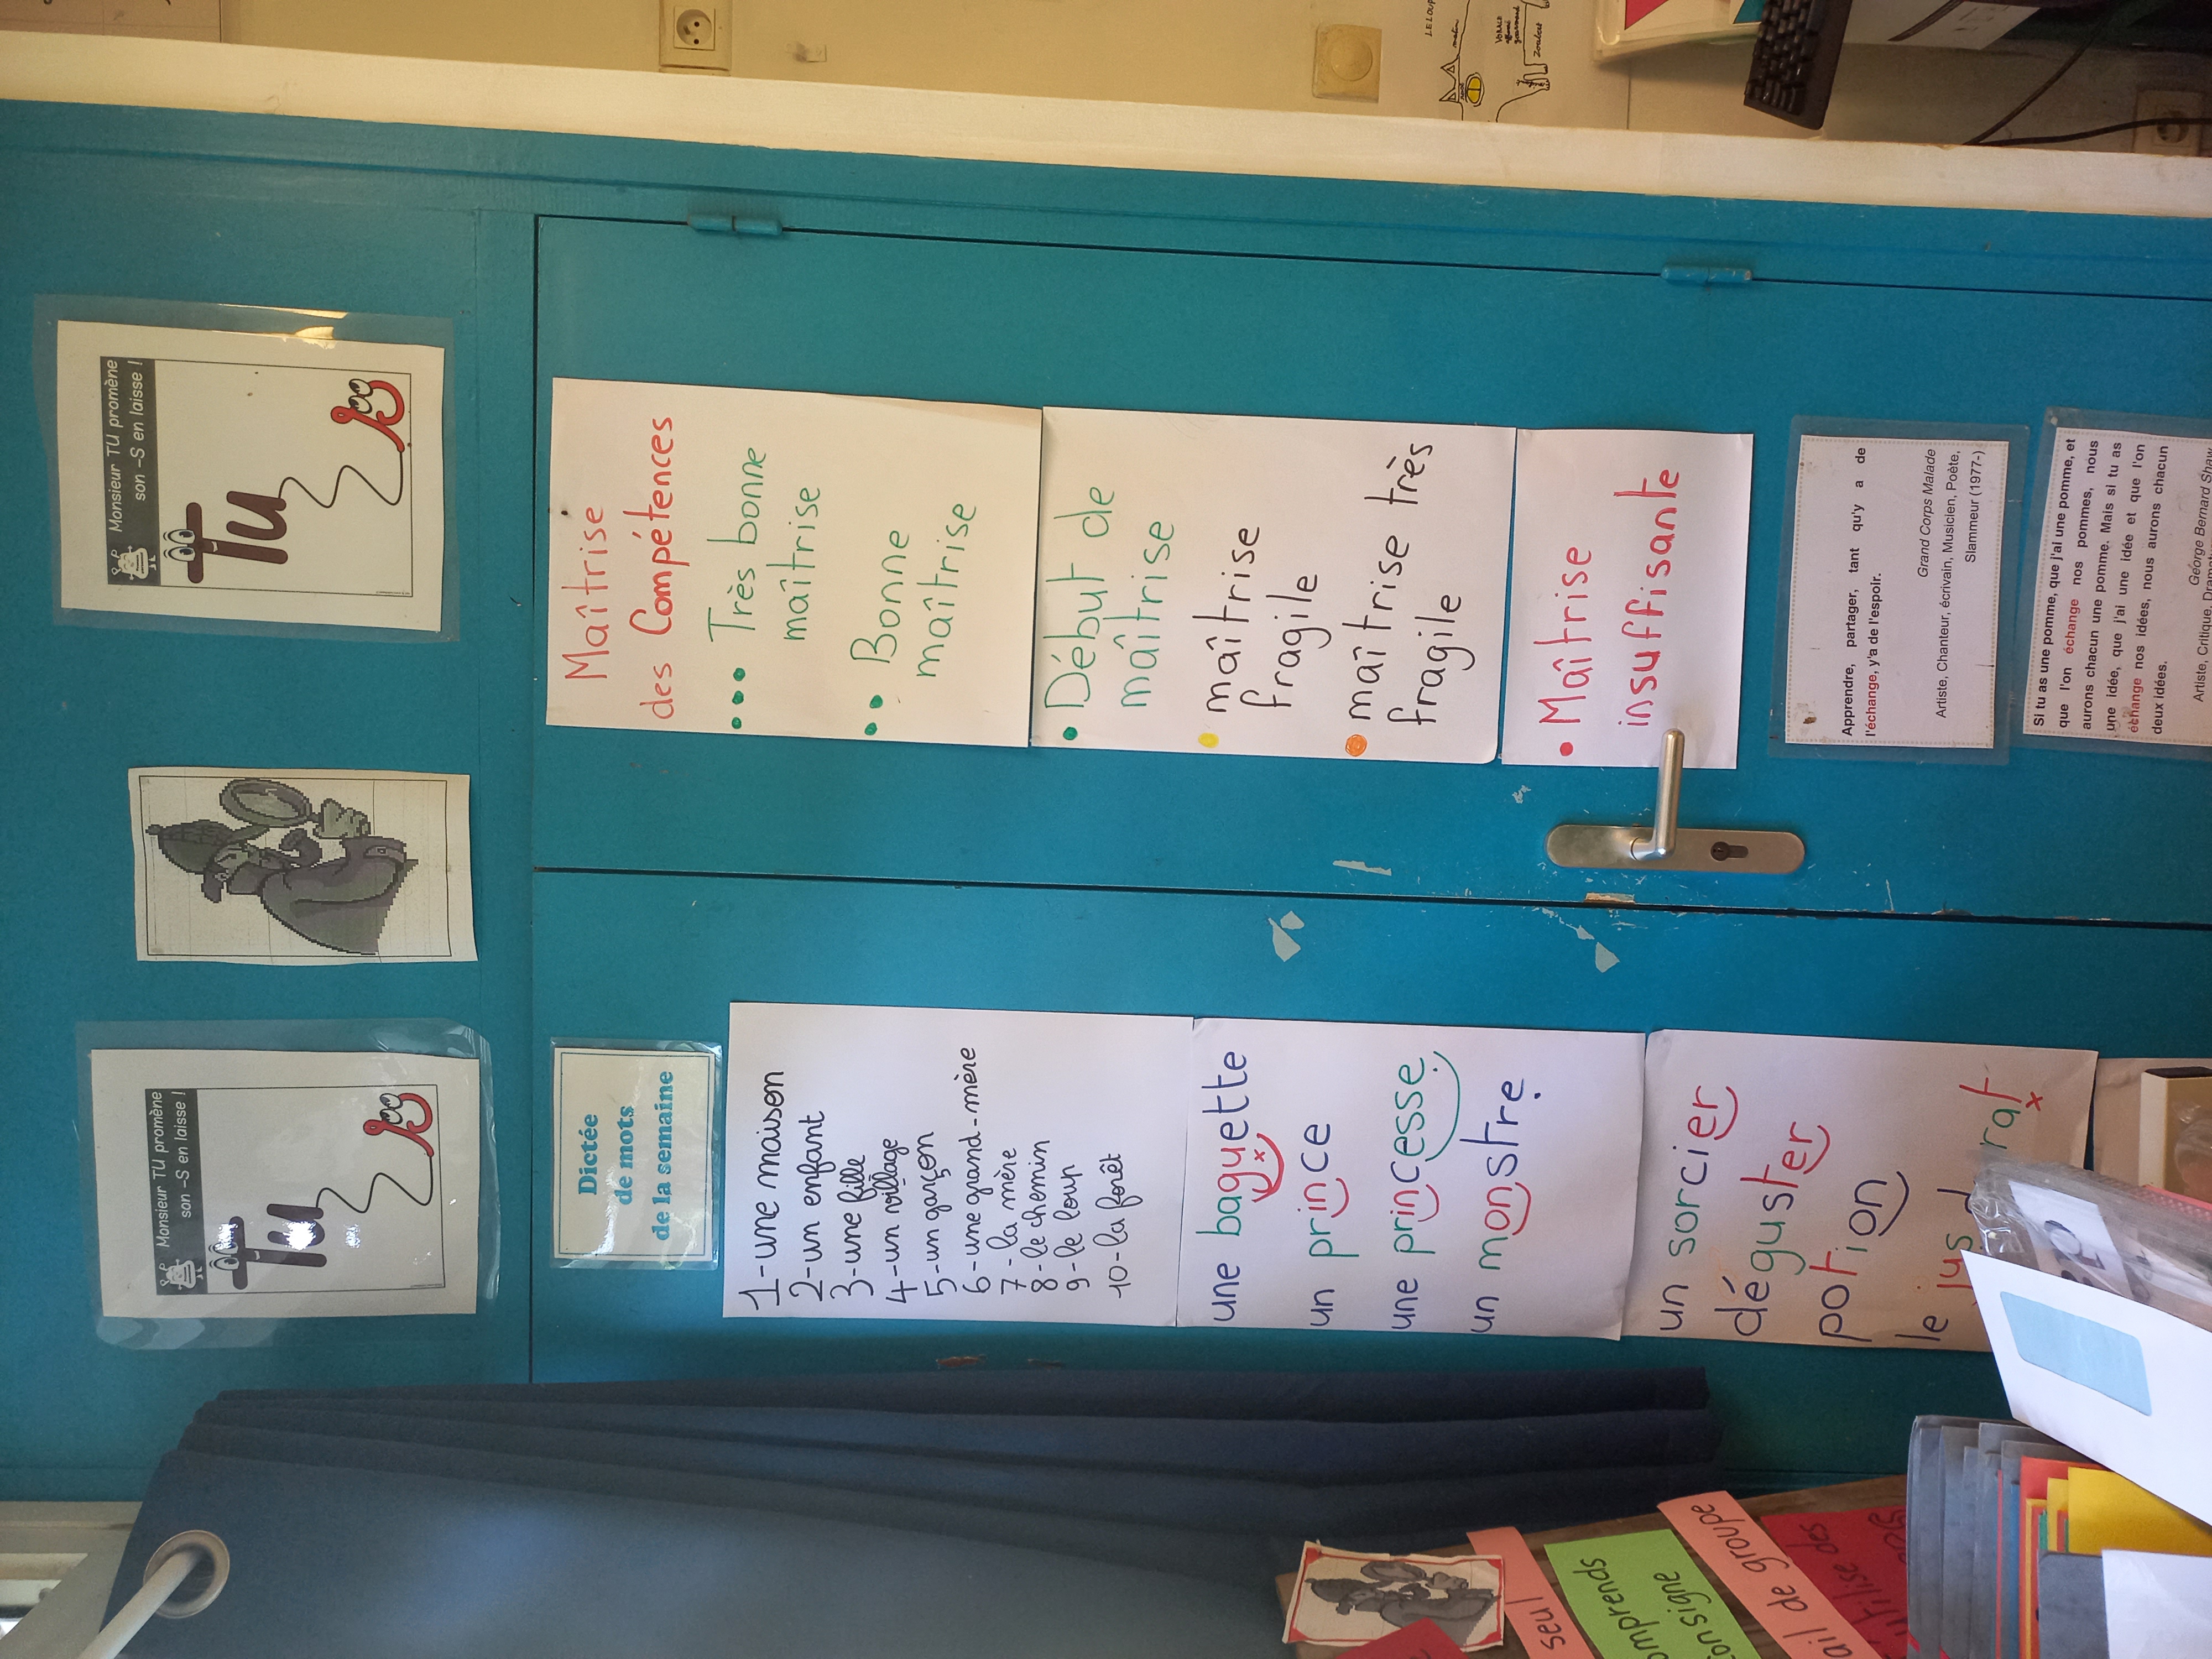 Monsieur TU promène
son -S en laisse !
Tu
Monsieur TU promène
son -S en laisse !
Tu
Dictée
de mots
de la semaine
1-une maison
2-un enfant
3-une fille
4-un village
5-un garçon
6-une grand-mère
7-la mère
8-le chemin
9-le loup
10-la forêt
une baguette
un prince
une princesse
un monstre
un sorcier
déguster
potion
le jus d rat
Maîtrise
des Compétences
••• Très bonne
maîtrise
•• Bonne
maîtrise
• Début de
maîtrise
• maîtrise
fragile
• maîtrise très
fragile
• Maîtrise
insuffisante
Apprendre, partager, tant qu'y a de
l'échange, y'a de l'espoir.
Grand Corps Malade
Artiste, Chanteur, écrivain, Musicien, Poète,
Slammeur (1977-)
Si tu as une pomme, que j'ai une pomme, et
que l'on échange nos pommes, nous
aurons chacun une pomme. Mais si tu as
une idée, que j'ai une idée et que l'on
échange nos idées, nous aurons chacun
deux idées.
George Bernard Shaw
Artiste, Critique,
LE LOUP
seul
omprends
onsigne
ail de groupe
utilise des